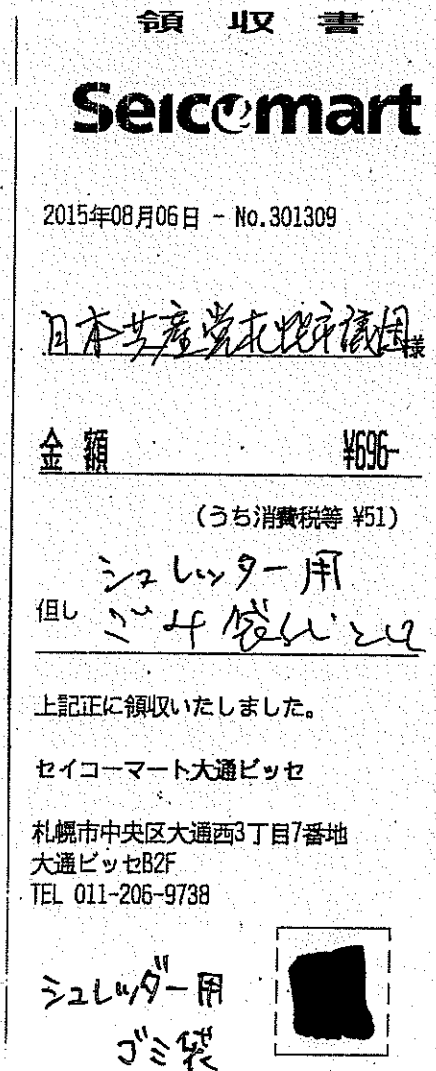 領収書
Seicomart
2015年08月06日 - No.301309
日本共産党札幌市議団様
金額 ¥696-
(うち消費税等 ¥51)
シュレッター用
但し ごみ袋代として
上記正に領収いたしました。
セイコーマート大通ビッセ
札幌市中央区大通西3丁目7番地
大通ビッセB2F
TEL 011-206-9738
シュレッダー用
ゴミ袋